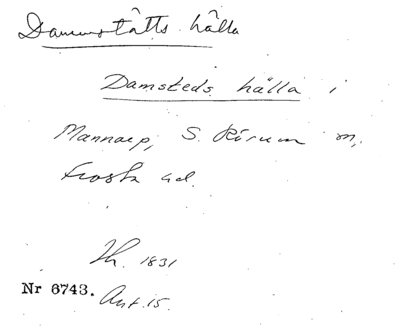 Dammstätts hälla
Damsteds hälla i
Mannarp, S. Rörum m,
Frosta hd.
Th. 1831
Nr 6743. Ant. 15.